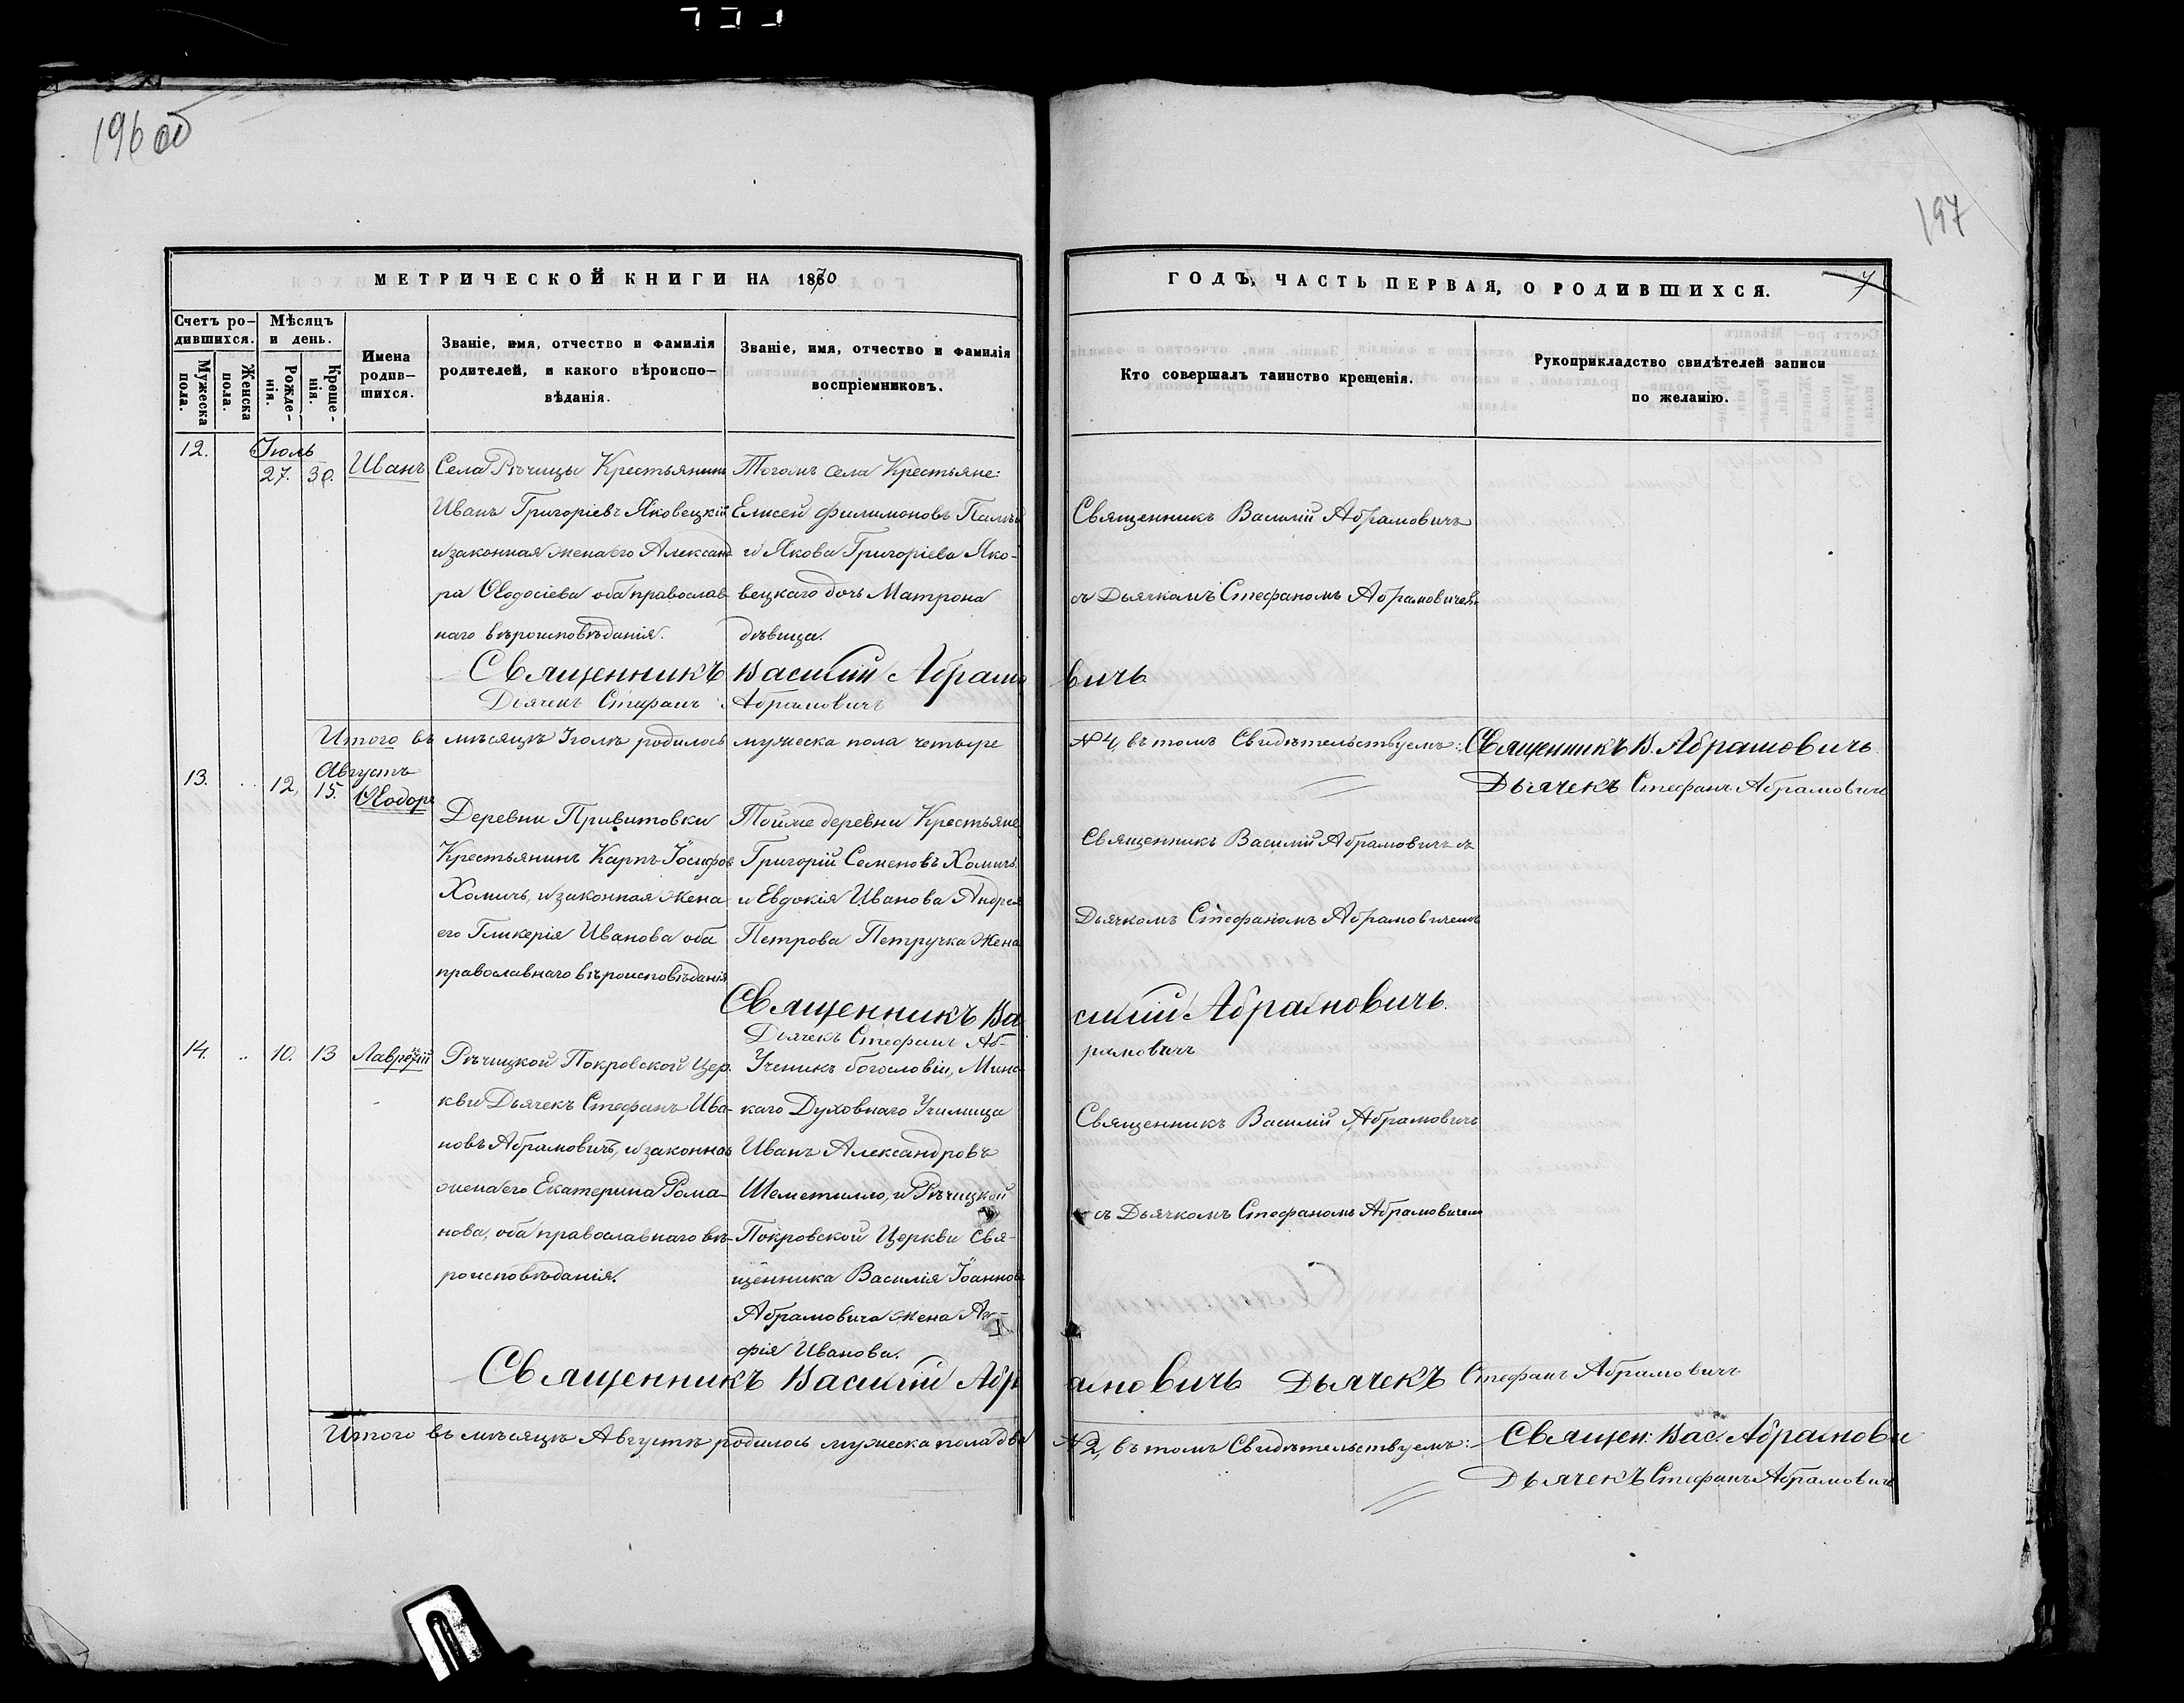 196 об
197
МЕТРИЧЕСКОЙ КНИГИ НА 1870
ГОДЪ, ЧАСТЬ ПЕРВАЯ, О РОДИВШИХСЯ.
7
Счетъ ро-
дившихся.
Мужеска
пола.
Женска
пола.
Мѣсяцъ
и день.
Рожде-
нія.
Креще-
нія.
Имена
родив-
шихся.
Званіе, имя, отчество и фамилія
родителей, и какого вѣроиспо-
вѣданія.
Званіе, имя, отчество и фамилія
воспріемниковъ.
Кто совершалъ таинство крещенія.
Рукоприкладство свидѣтелей записи
по желанію.
12.
Іюль
27. 30.
Иванъ
Села Рѣчицы Крестьянинъ
Иванъ Григоріевъ Яковецкій
и законная жена его Александ-
ра Ѳеодосіева оба православ-
наго вѣроисповѣданія.
Тогожъ села Крестьяне:
Елисей Филимоновъ
и Якова Григоріева Яко-
вецкаго дочь Матрона
дѣвица.
Священникъ Василій Абрамовичъ
съ Дьячкомъ Стефаномъ Абрамовичемъ
Священникъ Василій Абрамовичъ
Дьячекъ Стефанъ Абрамовичъ
Итого въ мѣсяцѣ Іюлѣ родилось мужеска пола четыре
№ 4, въ томъ Свидѣтельствуемъ: Священникъ В. Абрамовичъ
Дьячекъ Стефанъ Абрамовичъ
13. 12.
Августъ
15.
Ѳеодоръ
Деревни Привитовки
Крестьянинъ Карпъ Іосифовъ
Хомичъ, и законная жена
его Гликерія Иванова оба
православнаго вѣроисповѣданія
Тойже деревни Крестьяне
Григорій Семеновъ Хомичъ
и Евдокія Иванова Андрея
Петрова Петручка жена
Священникъ Василій Абрамовичъ съ
Дьячкомъ Стефаномъ Абрамовичемъ
Священникъ Василій Абрамовичъ.
Дьячекъ Стефанъ Аб-
рамовичъ
14. 10. 13
Лаврентій
Рѣчицкой Покровской Цер-
кви Дьячекъ Стефанъ Ива-
новъ Абрамовичъ, и законная
жена его Екатерина Рома-
нова, оба православнаго вѣ-
роисповѣданія.
Ученикъ богословіи, Минс
каго Духовнаго Училища
Иванъ Александровъ
Шеметилло, и Рѣчицкой
Покровской Церкви Свя-
щенника Василія Іоаннова
Абрамовича жена
фія Иванова.
Священникъ Василій Абрамовичъ
съ Дьячкомъ Стефаномъ Абрамовичемъ
Священникъ Василій Абрамовичъ Дьячекъ Стефанъ Абрамовичъ
Итого въ мѣсяцѣ Августѣ родилось мужеска пола два
№ 2, въ томъ Свидѣтельствуемъ: Священ: Вас. Абрамови
Дьячекъ Стефанъ Абрамовичъ